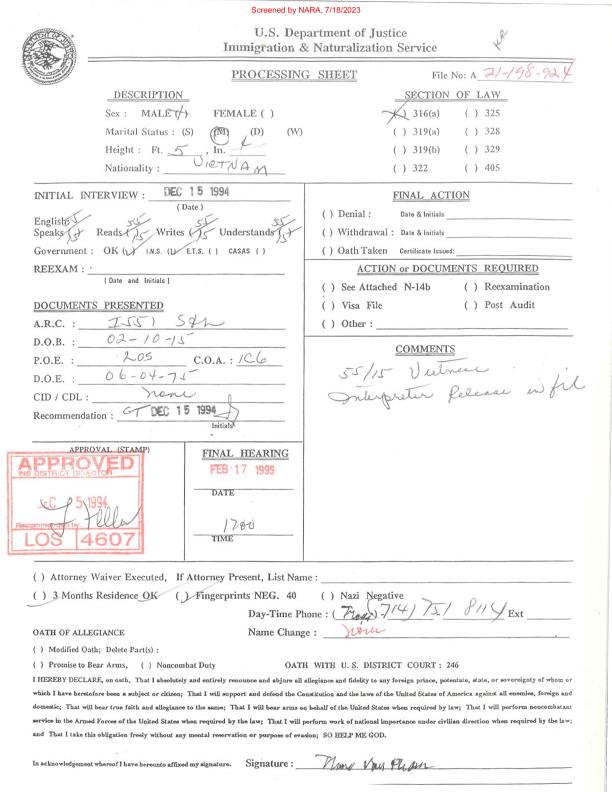 Screened by NARA, 7/18/2023
U.S. Department of Justice
Immigration & Naturalization Service
PROCESSING SHEET
File No: A 21-198-924
DESCRIPTION
Sex : MALE ( ) FEMALE ( )
Marital Status : (S) (M) (D) (W)
Height : Ft. 5 , In.
Nationality : VIETNAM
SECTION OF LAW
( ) 316(a) ( ) 325
( ) 319(a) ( ) 328
( ) 319(b) ( ) 329
( ) 322 ( ) 405
INITIAL INTERVIEW : DEC 15 1994
(Date)
English
Speaks Reads Writes Understands
Government : OK ( ) I.N.S. ( ) E.T.S. ( ) CASAS ( )
REEXAM :
( Date and Initials )
DOCUMENTS PRESENTED
A.R.C. : I551
D.O.B. : 02-10-15
P.O.E. : LOS C.O.A. : IC6
D.O.E. : 06-04-75
CID / CDL : none
Recommendation : GT DEC 15 1994
Initials
FINAL ACTION
( ) Denial : Date & Initials
( ) Withdrawal : Date & Initials
( ) Oath Taken Certificate Issued:
ACTION or DOCUMENTS REQUIRED
( ) See Attached N-14b ( ) Reexamination
( ) Visa File ( ) Post Audit
( ) Other :
COMMENTS
55/15
Interpreter Release in
APPROVAL (STAMP)
APPROVED
INS DISTRICT DIRECTOR
1994
Recommended by
LOS 4607
FINAL HEARING
FEB 17 1995
DATE
TIME
( ) Attorney Waiver Executed, If Attorney Present, List Name :
( ) 3 Months Residence OK ( ) Fingerprints NEG. 40 ( ) Nazi Negative
Day-Time Phone : (714) 751 8114 Ext
OATH OF ALLEGIANCE Name Change : none
( ) Modified Oath; Delete Part(s) :
( ) Promise to Bear Arms, ( ) Noncombat Duty OATH WITH U. S. DISTRICT COURT : 246
I HEREBY DECLARE, on oath, That I absolutely and entirely renounce and abjure all allegiance and fidelity to any foreign prince, potentate, state, or sovereignty of whom or
which I have heretofore been a subject or citizen; That I will support and defend the Constitution and the laws of the United States of America against all enemies, foreign and
domestic; That will bear true faith and allegiance to the same; That I will bear arms on behalf of the United States when required by law; That I will perform noncombatant
service in the Armed Forces of the United States when required by the law; That I will perform work of national importance under civilian direction when required by the law;
and That I take this obligation freely without any mental reservation or purpose of evasion; SO HELP ME GOD.
In acknowledgement whereof I have hereunto affixed my signature. Signature :